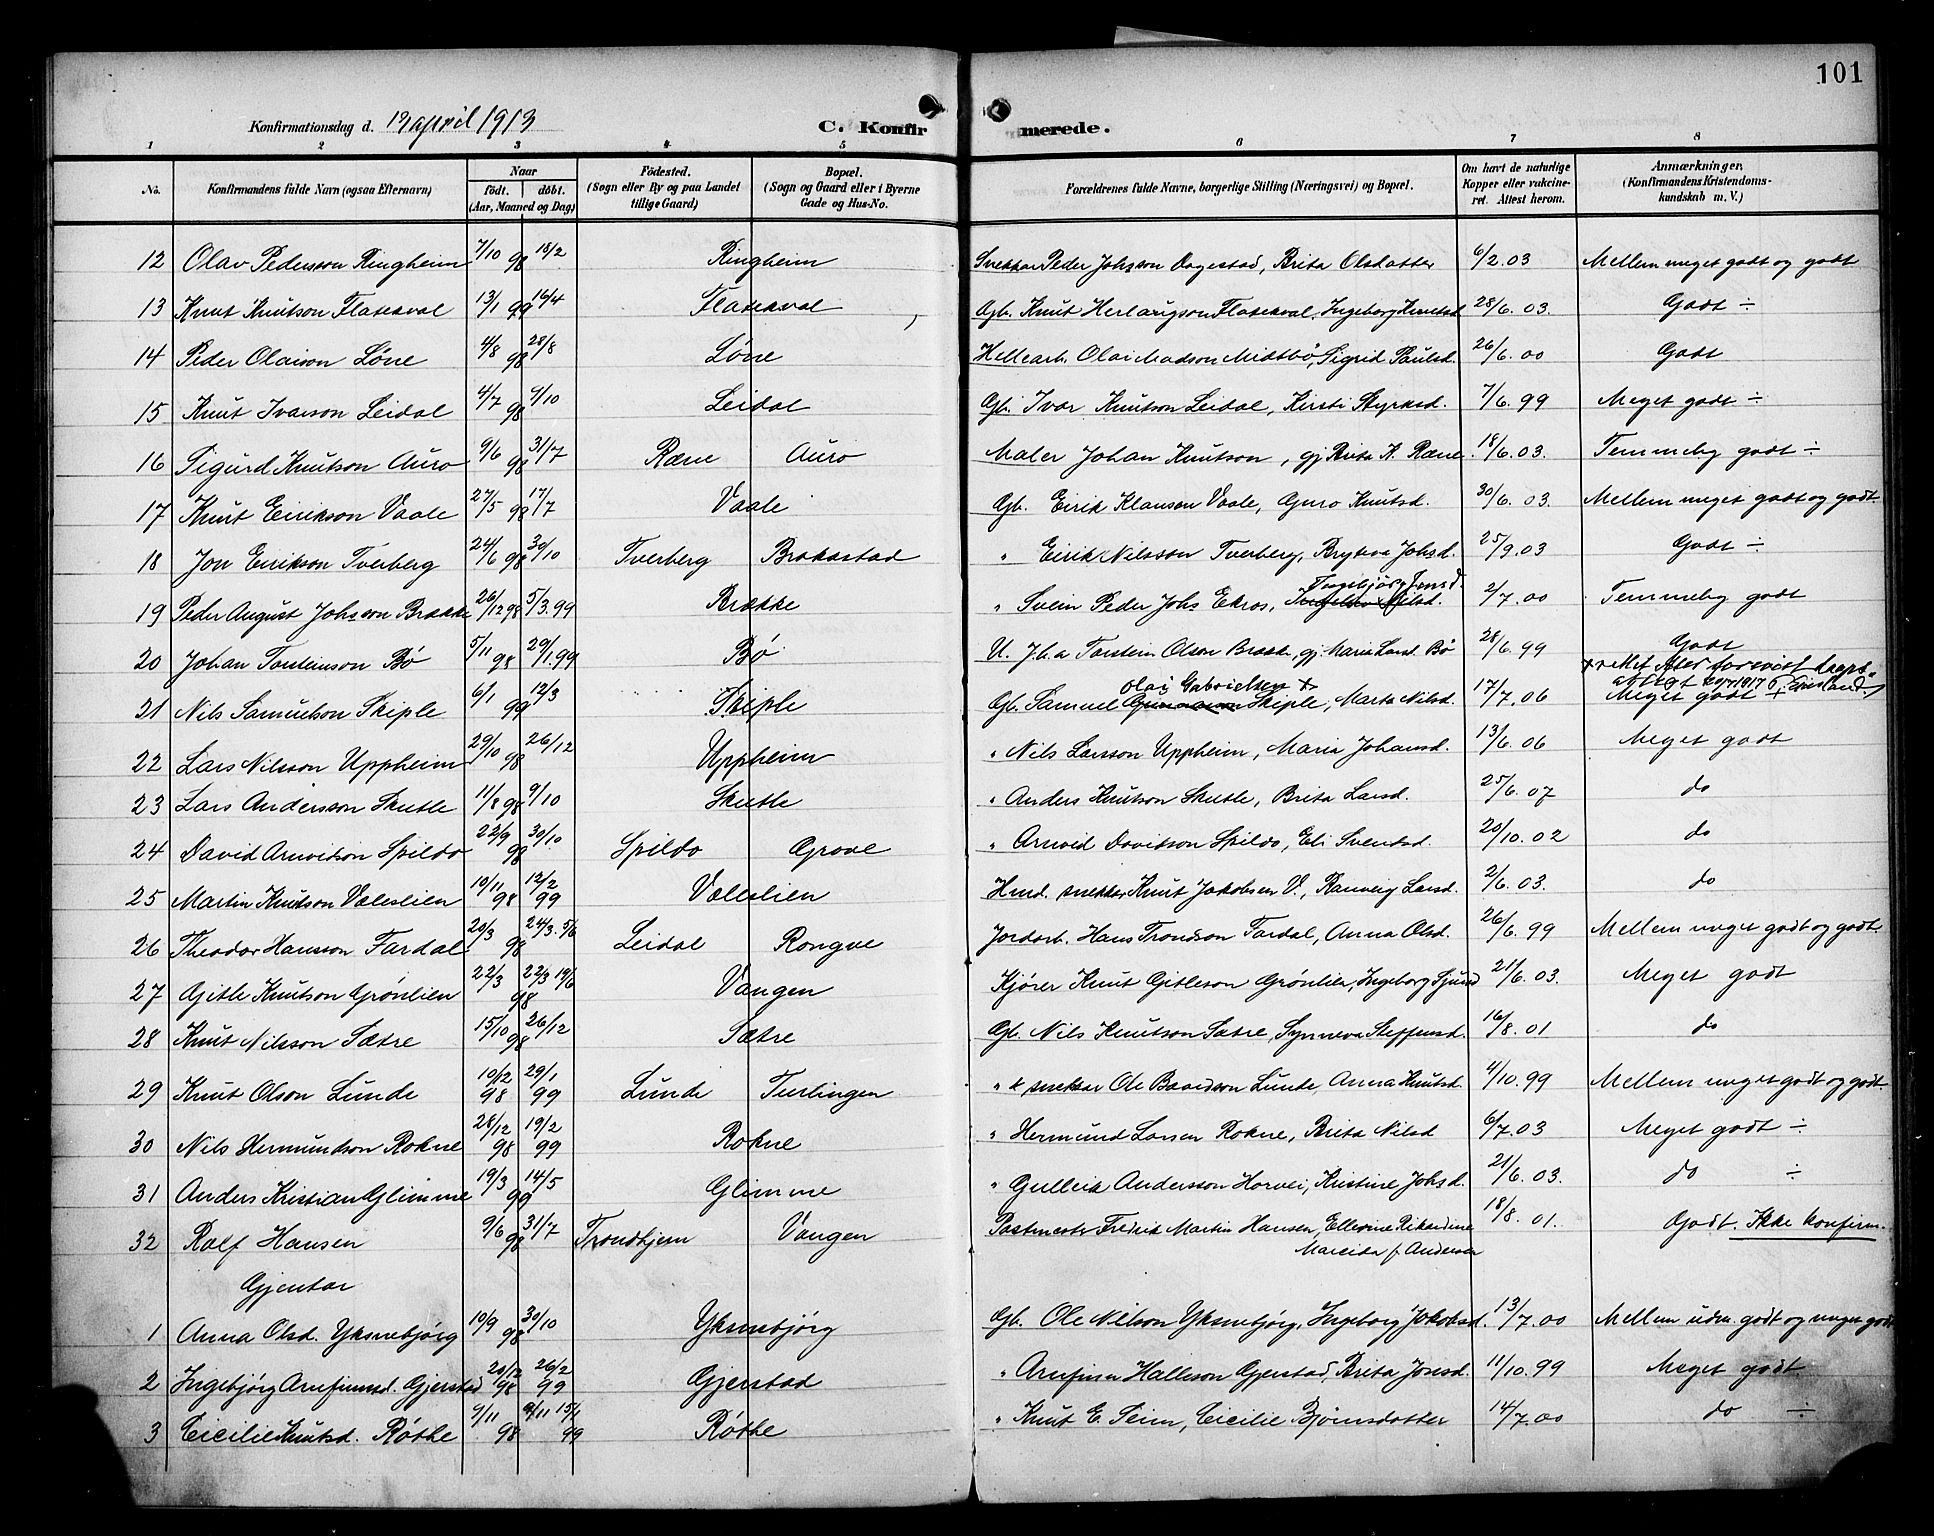 101
Konfirmationsdag d. 13 april 1913 C. Konfirmerede.
1 2 3 4 5 6 7 8
No. Konfirmandens fulde Navn (ogsaa Efternavn) Naar födt. döbt. (Aar, Maaned og Dag) Födested. (Sogn eller By og paa Landet tillige Gaard) Bopæl. (Sogn og Gaard eller i Byerne Gade og Hus-No. Forældrenes fulde Navne, borgerlige Stilling (Næringsvei) og Bopæl. Om havt de naturlige Kopper eller vakcineret. Attest herom. Anmærkninger, (Konfirmandens Kristendomskundskab m. V.)
12 Olav Pedersson Ringheim 7/10 98 18/2 Ringheim Snekkar Peder Johsson Dagestad, Brita Olsdatter 6/2.03 Mellem meget godt og godt
13 Knut Knutson Flatekval 13/1 99 16/4 Flatekval Gb. Knut Herlaugson Flatekval, Ingeborg Knutsd. 28/6.03. Godt ÷
14 Peder Olaison Löne 4/8 98 28/8 Löne Hellearb. Olai Madson Midtbö, Sigrid Paulsd. 26/6.00 Godt
15 Knut Ivarson Leidal 4/7 98 9/10 Leidal Gb. Ivar Knutson Leidal, Kirsti Styrksd. 7/6.99 Meget godt ÷
16 Sigurd Knutson Auro 9/6 98 31/7 Ræne Auro Maler Johan Knutson, gj Brita K. Ræne. 18/6.03. Temmelig godt ÷
17 Knut Eirikson Vaale 27/5 98 17/7 Vaale Gb. Eirik Klauson Vaale, Guro Knutsd. 30/6.03. Mellem meget godt og godt.
18 Jon Eirikson Tverberg 24/6 98 30/10 Tverberg Brakastad " Eirik Nilsson Tverberg, Bryteva Johsd. 25/9.03 Godt ÷
19 Peder August Johsson Brække 26/12 98 5/3.99 Brække " Svein Peder Johs Ekros, Ingebjörg Jensd. 2/7.00 Temmelig godt
20 Johan Torsteinson Bö 5/11 98 29/1.99 Bö U. J.b.a Torstein Olson Brække, gj. Maria Larsd. Bö 28/6.99 Godt
21 Nils Samuelson Skiple 6/1 99 12/3 Skiple Gb. Samuel Olai Gabrielsen + Skiple, Marta Nilsd. 17/7.06 Meget godt
22 Lars Nilsson Uppheim 29/10 98 26/12 Uppheim " Nils Larsson Uppheim, Maria Johansd. 13/6.06 Meget godt
23 Lars Andersson Skutle 11/8 98 9/10 Skutle " Anders Knutson Skutle, Brita Larsd. 25/6.07 do
24 David Arnvidson Spildo 22/9 98 30/10 Spildo Grove " Arnvid Davidson Spildo, Eli Svendsd. 20/10.02 do
25 Martin Knutson Væleslien 10/11 98 12/2 99 Væleslien Hmd. snekkar Knut Jakobsen V., Ranveig Larsd. 2/6.03. do
26 Theodor Hansson Fardal 20/3 98 24/3. 5/6 Leidal Rongve Jordarb. Hans Trondson Fardal, Anna Olsd. 26/6.99 Mellem meget godt og godt.
27 Gitle Knutson Grönlien 22/3 98 22/3 19/6 Vangen Kjörer Knut Gitleson Grönlien, Ingeborg Sjursd 21/6.03. Meget godt
28 Knut Nilsson Sætre 15/10 98 26/12 Sætre Gb. Nils Knutson Sætre, Synneva Steffensd. 16/8.01 do
29 Knut Olson Lunde 10/2 98 29/1 99 Lunde Turlingen " & snekkar Ole Davidson Lunde, Anna Knutsd. 4/10.99 Mellem meget godt og godt.
30 Nils Hermundson Rokne 28/12 98 19/2 99 Rokne " Hermund Larsen Rokne, Brita Nilsd 6/7.03 Meget godt ÷
31 Anders Kristian Glimme 19/3 99 14/5 Glimme " Gulleik Andersson Horvei, Kristine Johsd. 21/6.03. do ÷
32 Ralf Hansen 9/6 98 31/7 Trondhjem Vangen Postmester Fredrik Martin Hansen, Ellevine Rikardine 18/8.01. Godt. Ikke konfirm.
f. Andersen
Gjentar
1 Anna Olsd. Yksnebjörg 10/9 98 30/10 Yksnebjörg Gb. Ole Nilson Yksnebjörg, Ingeborg Jakobsd. 13/7.00 Mellem udm. godt og meget godt
2 Ingebjörg Arnfinnsd. Gjerstad 20/12 98 26/2 99 Gjerstad " Arnfinn Halleson Gjerstad, Brita Jonsd. 11/10.99 Meget godt.
3 Cicilie Knutsd. Röthe 9/11 98 9/11 15/1 99 Röthe " Knut E. Seim, Cicilie Bjömsdotter 14/7.00 do ÷